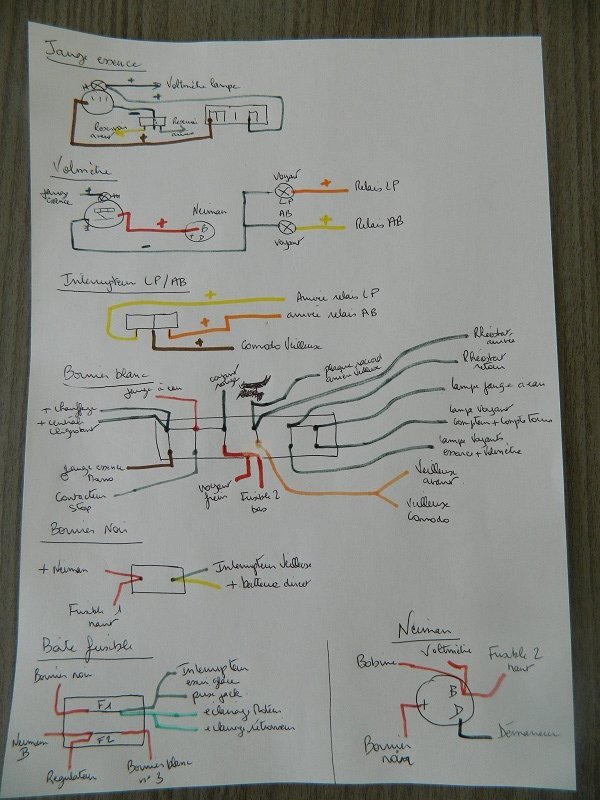 Jauge essence
+ Voltmètre lampe
+
Réservoir avant
Réservoir
+
Volmètre
jauge essence
Neiman
+
B
+ D
-
Voyant
LP
+ Relais LP
AB
Voyant
+ Relais AB
Interrupteur LP/AB
+ Arrivée relais LP
+ arrivée relais AB
+ Comodo Veilleuse
Bornier blanc
jauge à eau
+ chauffage
+ centrale clignotant
jauge essence
Contacteur Stop
voyant frein
Fusible 2 bas
Rhéostat arrivée
Rhéostat retour
lampe jauge à eau
lampe voyant compteur + compte tours
lampe voyants essence + Volmètre
Veilleuse avant
Veilleuse Comodo
Bornier Noir
+ Neiman
Fusible 1 haut
Interrupteur Veilleuse
+ batterie direct
Boîte fusible
Bornier noir
F1
F2
Neiman B
Régulateur
Bornier blanc n° 3
Interrupteur essuie glace
prise jack
eclairage Moteur
eclairage rétroviseur
Neiman
Bobine
Voltmètre
Fusible 2 haut
B
D
+
Bornier noir
Démarreur